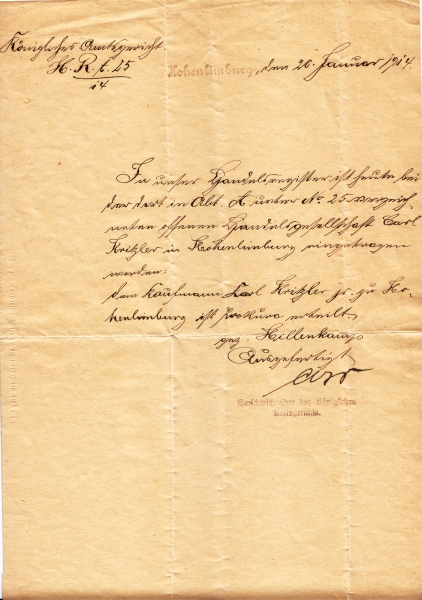 Königliches Amtsgericht
H. R. A. 25
14
Hohenlimburg, den 20. Januar 1914.
In unser Handelsregister ist heute bei
der dort in Abt. A unter No 25 verzeich-
neten offenen Handelsgesellschaft Carl
Kritzler in Hohenlimburg eingetragen
worden:
dem Kaufmann Carl Kritzler jr. zu Ho-
henlimburg ist Prokura erteilt.
gez Hillenkamp
Ausgefertigt
Gerichtsschreiber des Königlichen
Amtsgerichts.